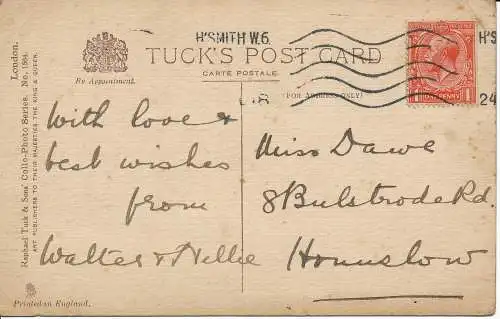 London.
Raphael Tuck & Sons' Collo-Photo Series. No. 1864
ART PUBLISHERS TO THEIR MAJESTIES THE KING & QUEEN.
By Appointment.
TUCK'S POST CARD
CARTE POSTALE
(FOR ADDRESS ONLY)
H'SMITH W.6.
H'S
24
ONE PENNY
1
With love &
best wishes
from
Walter & Nellie
Miss Dawe
8 Bulstrode Rd.
Hounslow
Printed in England.